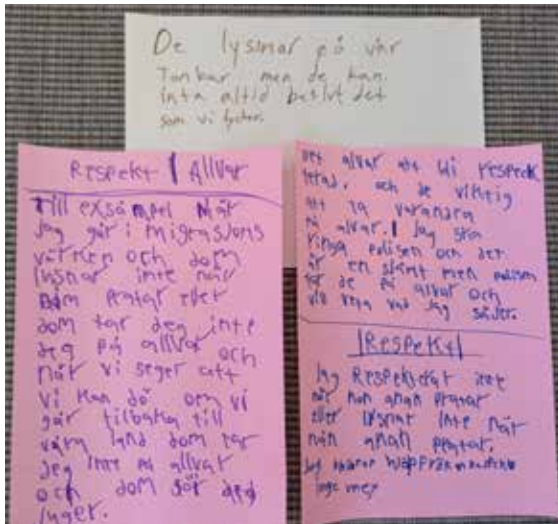 De lysnar på vår
Tankar men de kan
inta altid beslut det
som vi tycter.
Respekt | Allvar
Till exsämpel när
Jag går i migrasjons
värken och dom
lysnar inte när
man pratar eller
dom tar deg inte
deg på allvar och
när vi seger att
vi kan dö om vi
går tilbaka till
våra land dom tar
deg inte på allvar
och dom sör deg
luger.
Det alvar att bli respeck
terad, och de viktig
att ta varandra
på alvar. Jag ska
ringa polisen och det
är en skämt men polisen
tar de på alvar och
vill veta vad jag säder.
|RESPEKt|
Jag RESPEKterar inte
när non anan pratar
eller lysnar inte när
nån anan pratar.
Jag
inge mer